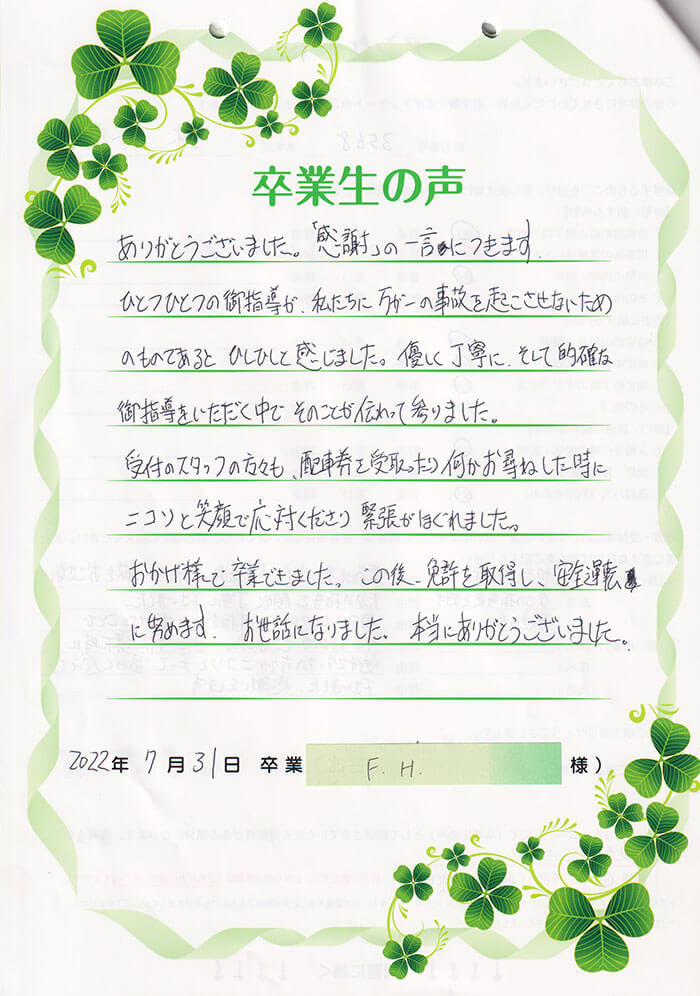 卒業生の声
ありがとうございました。「感謝」の一言につきます.
ひとつひとつの御指導が、私たちに万が一の事故を起こさせないため
のものであると ひしひしと感じました。優しく丁寧に、そして的確な
御指導をいただく中で そのことが伝わって参りました。
受付のスタッフの方々も、配車券を受取ったり何かお尋ねした時に
ニコリと笑顔で応対くださり 緊張がほぐれました。
おかげ様で卒業できました。この後、免許を取得し、安全運転
に努めます. お世話になりました。本当にありがとうございました。
2022年 7月31日 卒業 F. H. 様)